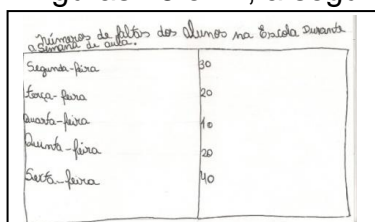 números de faltas dos alunos na Escola Durante
a semana de aula.
Segunda-feira 30
terça-feira 20
quarta-feira 10
Quinta-feira 20
Sexta-feira 40